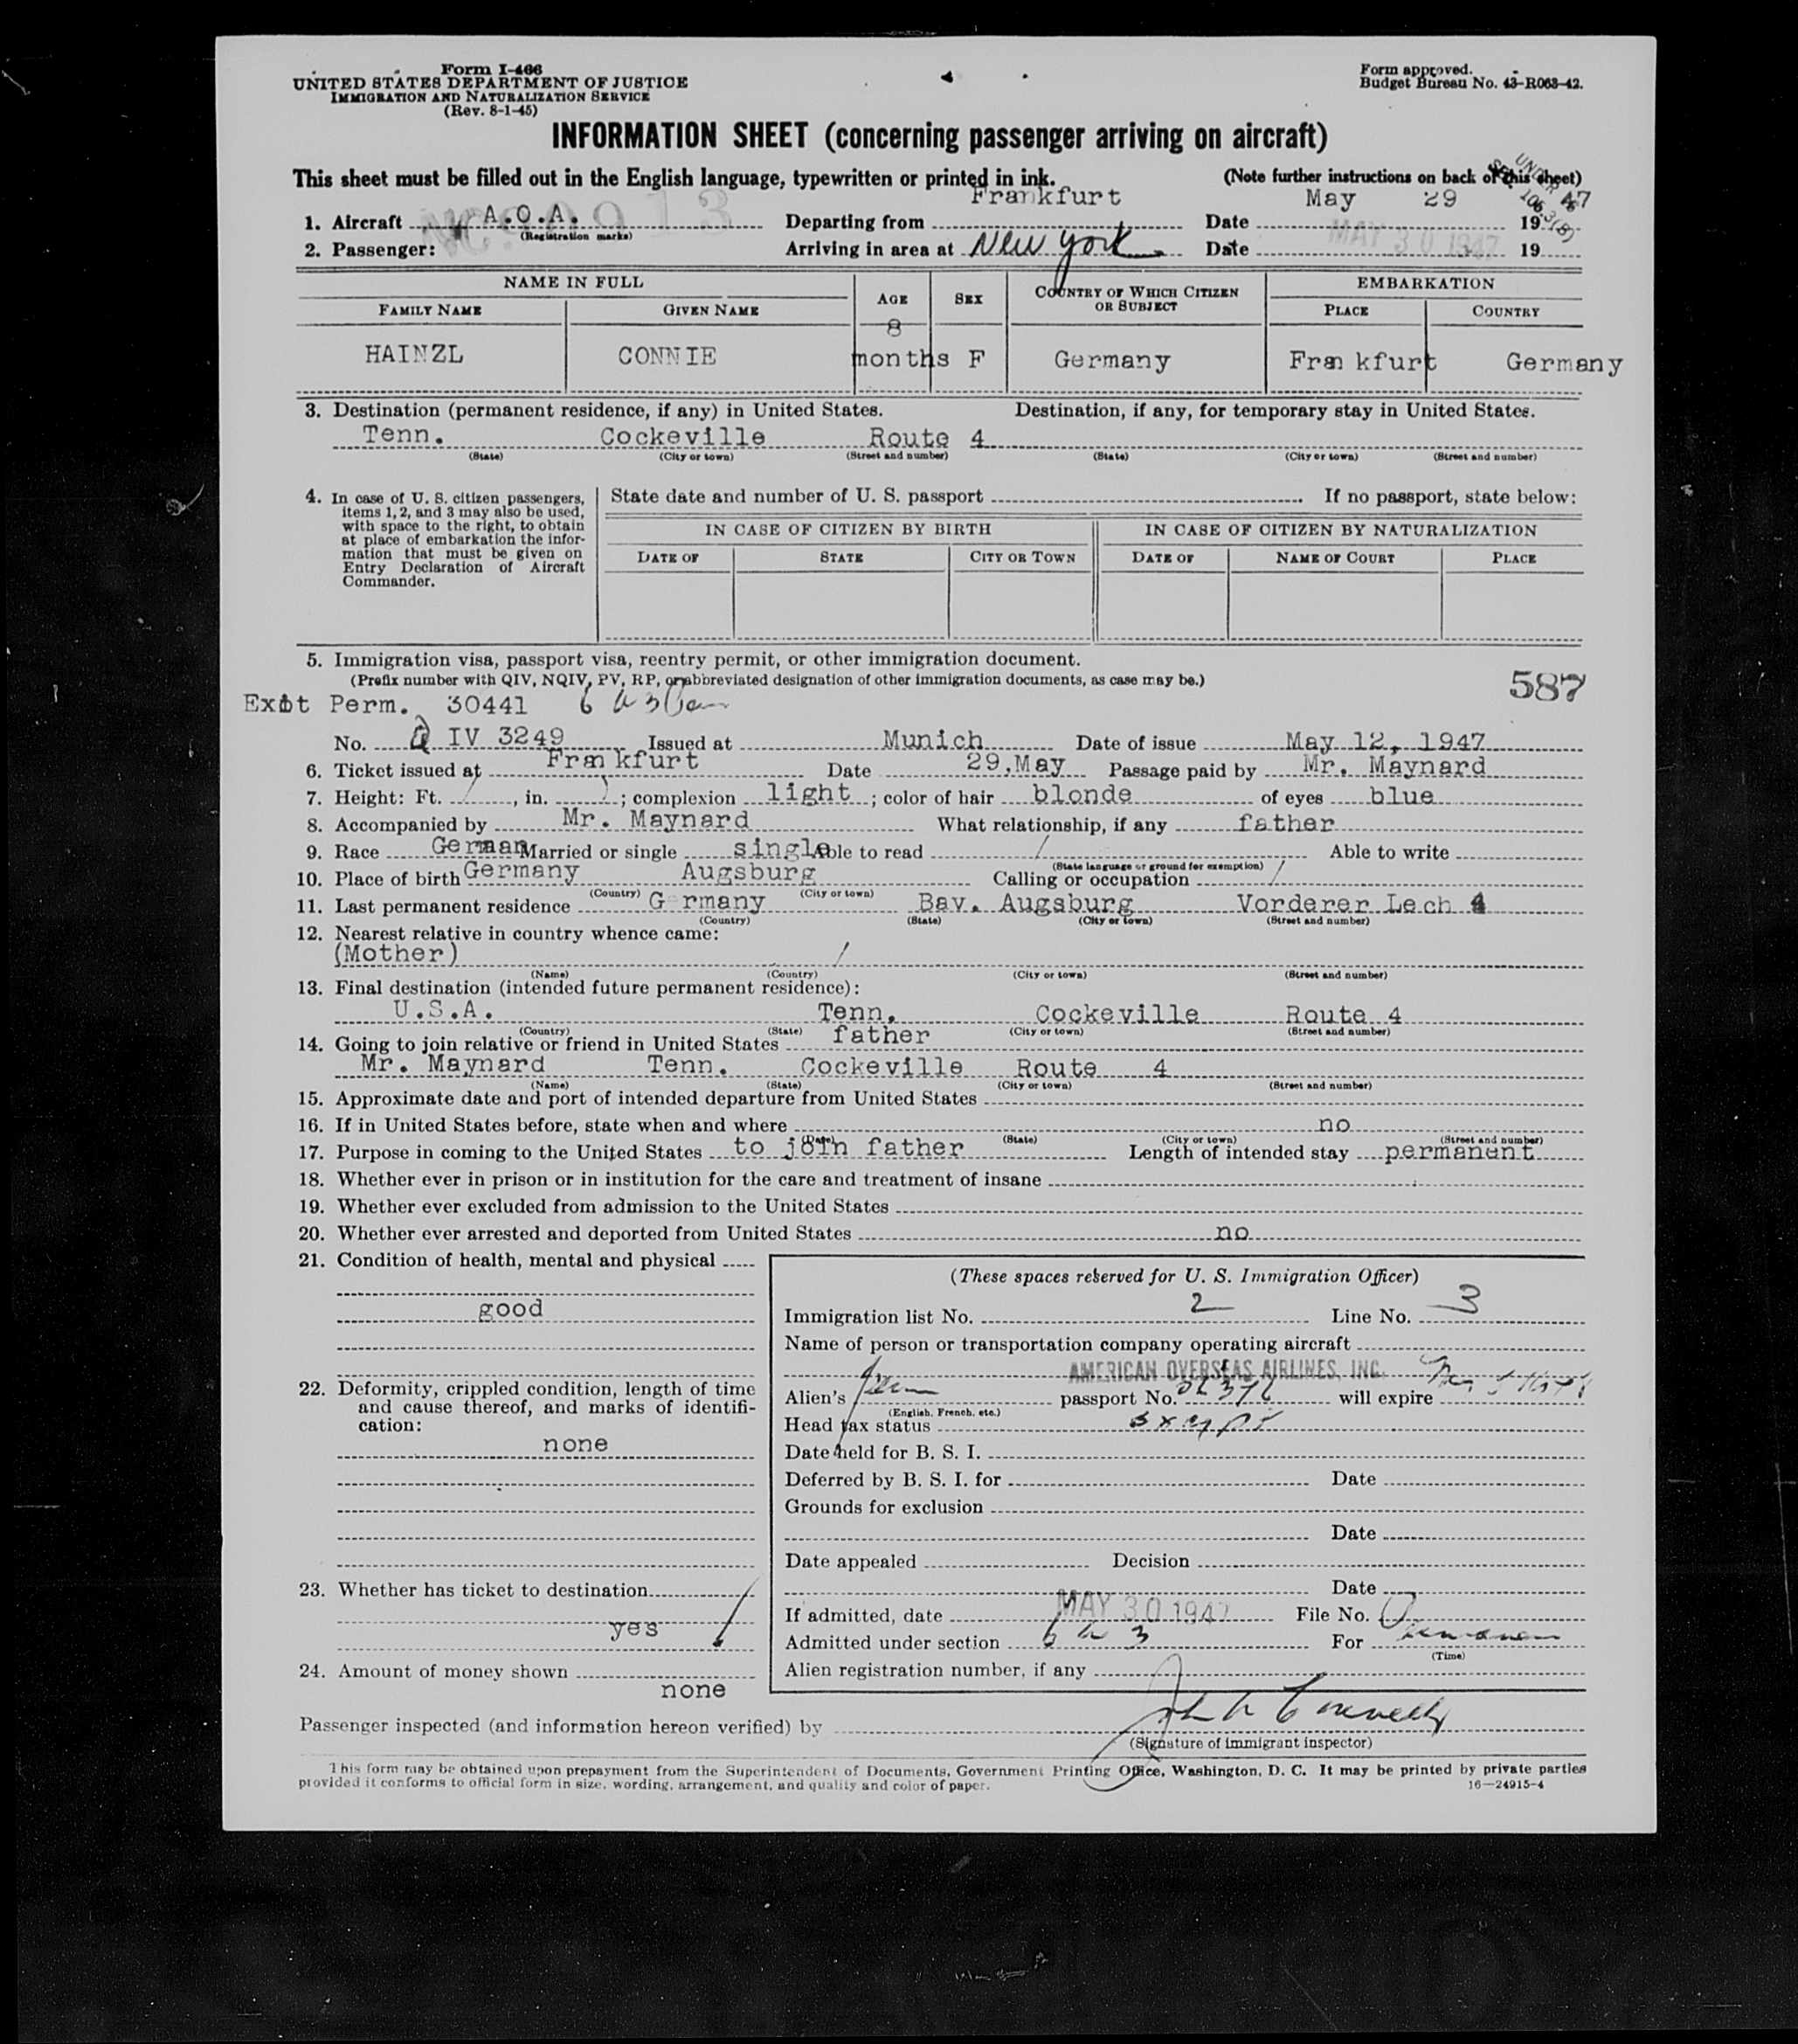 Form I-466
UNITED STATES DEPARTMENT OF JUSTICE
IMMIGRATION AND NATURALIZATION SERVICE
(Rev. 8-1-45)
Form approved.
Budget Bureau No. 43-R063-42.
INFORMATION SHEET (concerning passenger arriving on aircraft)
This sheet must be filled out in the English language, typewritten or printed in ink. (Note further instructions on back of this sheet)
UNDER
SEC. 106.3(B)
NC90913
1. Aircraft A.O.A. Departing from Frankfurt Date May 29 1947
(Registration marks)
2. Passenger: Arriving in area at New York Date MAY 30 1947 19
NAME IN FULL AGE SEX COUNTRY OF WHICH CITIZEN OR SUBJECT EMBARKATION
FAMILY NAME GIVEN NAME PLACE COUNTRY
HAINZL CONNIE 8 months F Germany Fran kfurt Germany
3. Destination (permanent residence, if any) in United States. Destination, if any, for temporary stay in United States.
Tenn. Cockeville Route 4
(State) (City or town) (Street and number) (State) (City or town) (Street and number)
4. In case of U. S. citizen passengers, items 1, 2, and 3 may also be used, with space to the right, to obtain at place of embarkation the information that must be given on Entry Declaration of Aircraft Commander.
State date and number of U. S. passport . If no passport, state below:
IN CASE OF CITIZEN BY BIRTH IN CASE OF CITIZEN BY NATURALIZATION
DATE OF STATE CITY OR TOWN DATE OF NAME OF COURT PLACE
5. Immigration visa, passport visa, reentry permit, or other immigration document.
(Prefix number with QIV, NQIV, PV, RP, or abbreviated designation of other immigration documents, as case may be.)
587
Exit Perm. 30441 6 a 3
No. Q IV 3249 Issued at Munich Date of issue May 12, 1947
6. Ticket issued at Fran kfurt Date 29.May Passage paid by Mr. Maynard
7. Height: Ft. /, in. / ; complexion light ; color of hair blonde of eyes blue
8. Accompanied by Mr. Maynard What relationship, if any father
9. Race German Married or single single Able to read / Able to write
(State language or ground for exemption)
10. Place of birth Germany Augsburg Calling or occupation /
(Country) (City or town)
11. Last permanent residence G rmany Bav. Augsburg Vorderer Lech 4
(Country) (State) (City or town) (Street and number)
12. Nearest relative in country whence came:
(Mother) /
(Name) (Country) (City or town) (Street and number)
13. Final destination (intended future permanent residence):
U.S.A. Tenn. Cockeville Route 4
(Country) (State) (City or town) (Street and number)
14. Going to join relative or friend in United States father
Mr. Maynard Tenn. Cockeville Route 4
(Name) (State) (City or town) (Street and number)
15. Approximate date and port of intended departure from United States
16. If in United States before, state when and where no
(Date) (State) (City or town) (Street and number)
17. Purpose in coming to the United States to join father Length of intended stay permanent
18. Whether ever in prison or in institution for the care and treatment of insane
19. Whether ever excluded from admission to the United States
20. Whether ever arrested and deported from United States no
21. Condition of health, mental and physical
good
22. Deformity, crippled condition, length of time and cause thereof, and marks of identification:
none
23. Whether has ticket to destination
yes /
24. Amount of money shown
none
(These spaces reserved for U. S. Immigration Officer)
Immigration list No. 2 Line No. 3
Name of person or transportation company operating aircraft
AMERICAN OVERSEAS AIRLINES, INC.
Alien's passport No. will expire
(English, French, etc.)
Head tax status exempt
Date held for B. S. I.
Deferred by B. S. I. for Date
Grounds for exclusion
Date
Date appealed Decision
Date
If admitted, date MAY 30 1947 File No.
Admitted under section 6 a 3 For
(Time)
Alien registration number, if any
Passenger inspected (and information hereon verified) by
(Signature of immigrant inspector)
This form may be obtained upon prepayment from the Superintendent of Documents, Government Printing Office, Washington, D. C. It may be printed by private parties
provided it conforms to official form in size, wording, arrangement, and quality and color of paper. 16—24915-4